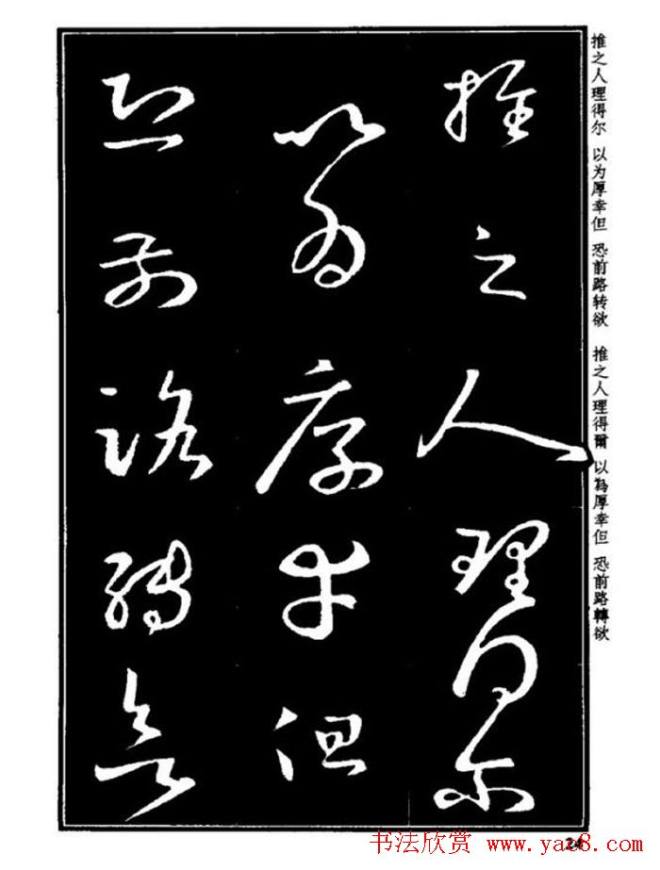 推之人理得尔
以为厚幸但
恐前路转欲
推之人理得尔 以为厚幸但 恐前路转欲 推之人理得爾 以為厚幸但 恐前路轉欲
24
书法欣赏 www.yac8.com